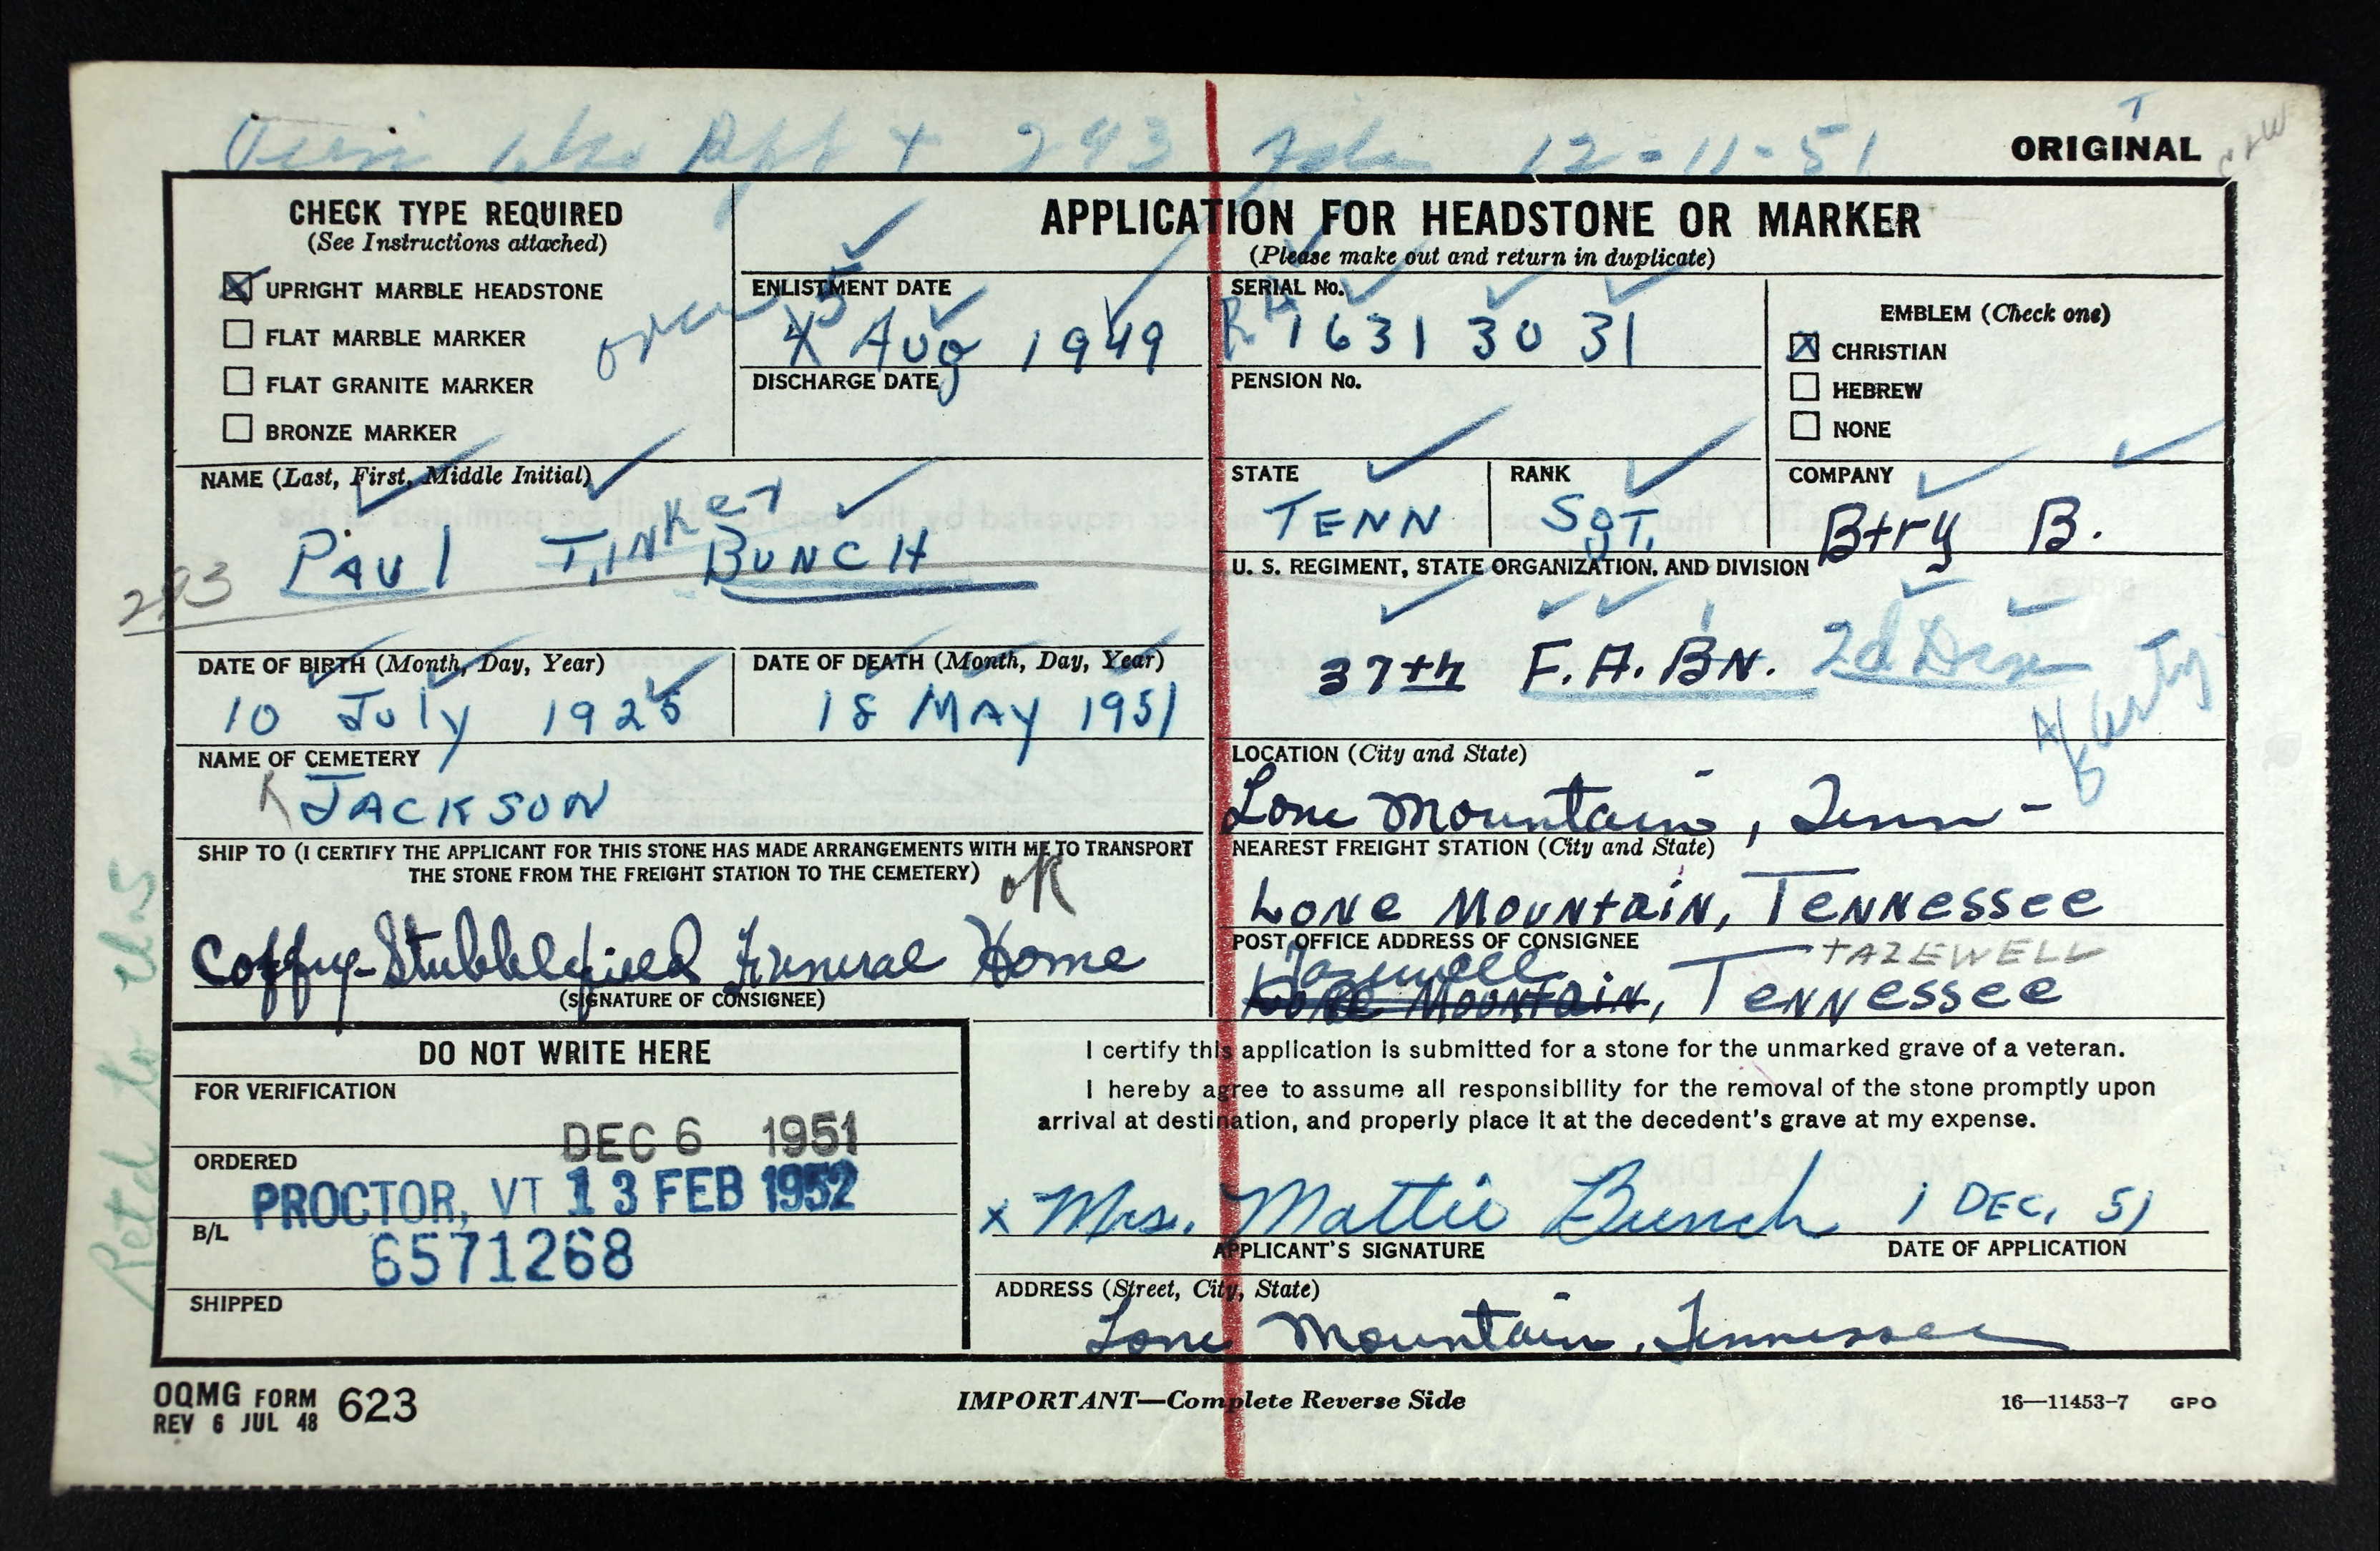 293 12-11-51
ORIGINAL
CHECK TYPE REQUIRED
(See Instructions attached)
UPRIGHT MARBLE HEADSTONE
FLAT MARBLE MARKER
FLAT GRANITE MARKER
BRONZE MARKER
APPLICATION FOR HEADSTONE OR MARKER
(Please make out and return in duplicate)
ENLISTMENT DATE
5
4 Aug 1949
DISCHARGE DATE
SERIAL No.
RA 163 1 30 31
PENSION No.
EMBLEM (Check one)
CHRISTIAN
HEBREW
NONE
NAME (Last, First, Middle Initial)
PAUl TiNKer BUNCH
293
STATE
TENN
RANK
SgT.
COMPANY
Btry B.
U. S. REGIMENT, STATE ORGANIZATION, AND DIVISION
37th F.A. BN. 2d
DATE OF BIRTH (Month, Day, Year)
10 July 1925
DATE OF DEATH (Month, Day, Year)
18 MAY 1951
NAME OF CEMETERY
JACKSON
LOCATION (City and State)
Lone Mountain, Tenn-
SHIP TO (I CERTIFY THE APPLICANT FOR THIS STONE HAS MADE ARRANGEMENTS WITH ME TO TRANSPORT
THE STONE FROM THE FREIGHT STATION TO THE CEMETERY)
OK
NEAREST FREIGHT STATION (City and State)
LONe MOUNtaiN, TeNNessee
Coffey-Stubblefield Funeral Home
(SIGNATURE OF CONSIGNEE)
POST OFFICE ADDRESS OF CONSIGNEE
TAZEWELL
Tazewell
Lone Mountain, TeNNessee
DO NOT WRITE HERE
FOR VERIFICATION
DEC 6 1951
ORDERED
PROCTOR, VT 13 FEB 1952
B/L
6571268
SHIPPED
I certify this application is submitted for a stone for the unmarked grave of a veteran.
I hereby agree to assume all responsibility for the removal of the stone promptly upon
arrival at destination, and properly place it at the decedent's grave at my expense.
x Mrs. Mattie Bunch 1 DEC, 51
APPLICANT'S SIGNATURE
DATE OF APPLICATION
ADDRESS (Street, City, State)
Lone Mountain, Tennessee
OQMG FORM 623
REV 6 JUL 48
IMPORTANT—Complete Reverse Side
16—11453-7 GPO